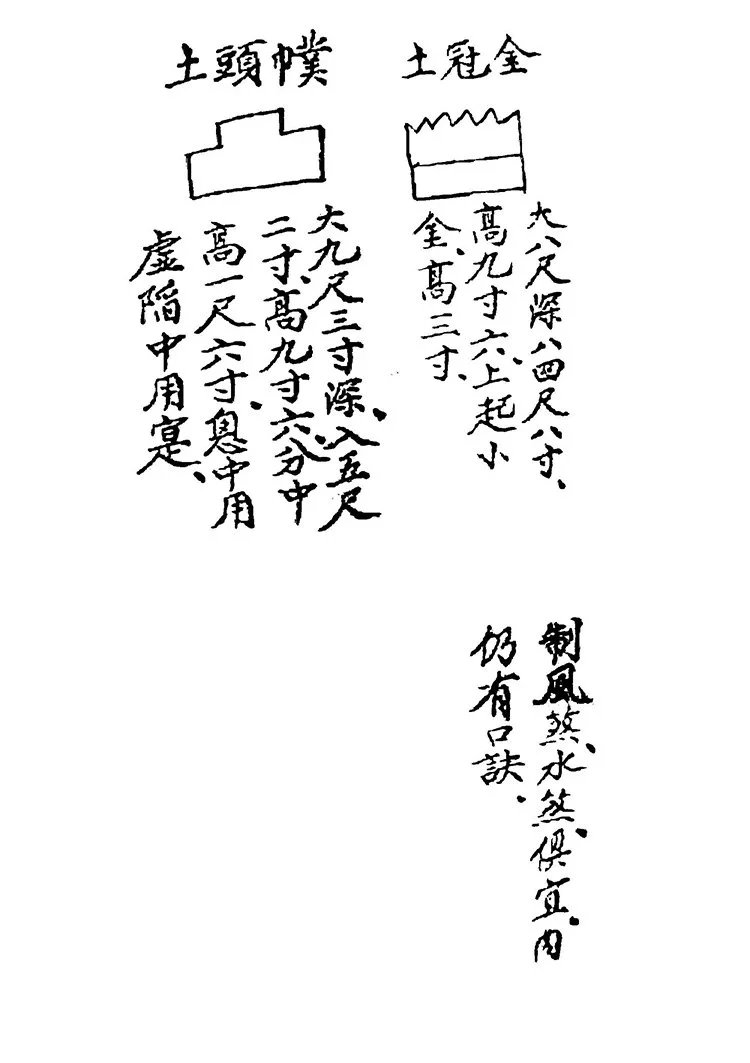 金冠土
大八尺深八四尺八寸、
高九寸六、上起小
金、高三寸、
幞頭土
大九尺三寸深、入五尺
二寸、高九寸六、分中
高一尺六寸、息中用
虛陷中用寔、
制風煞、水煞、俱宜、內
仍有口訣、